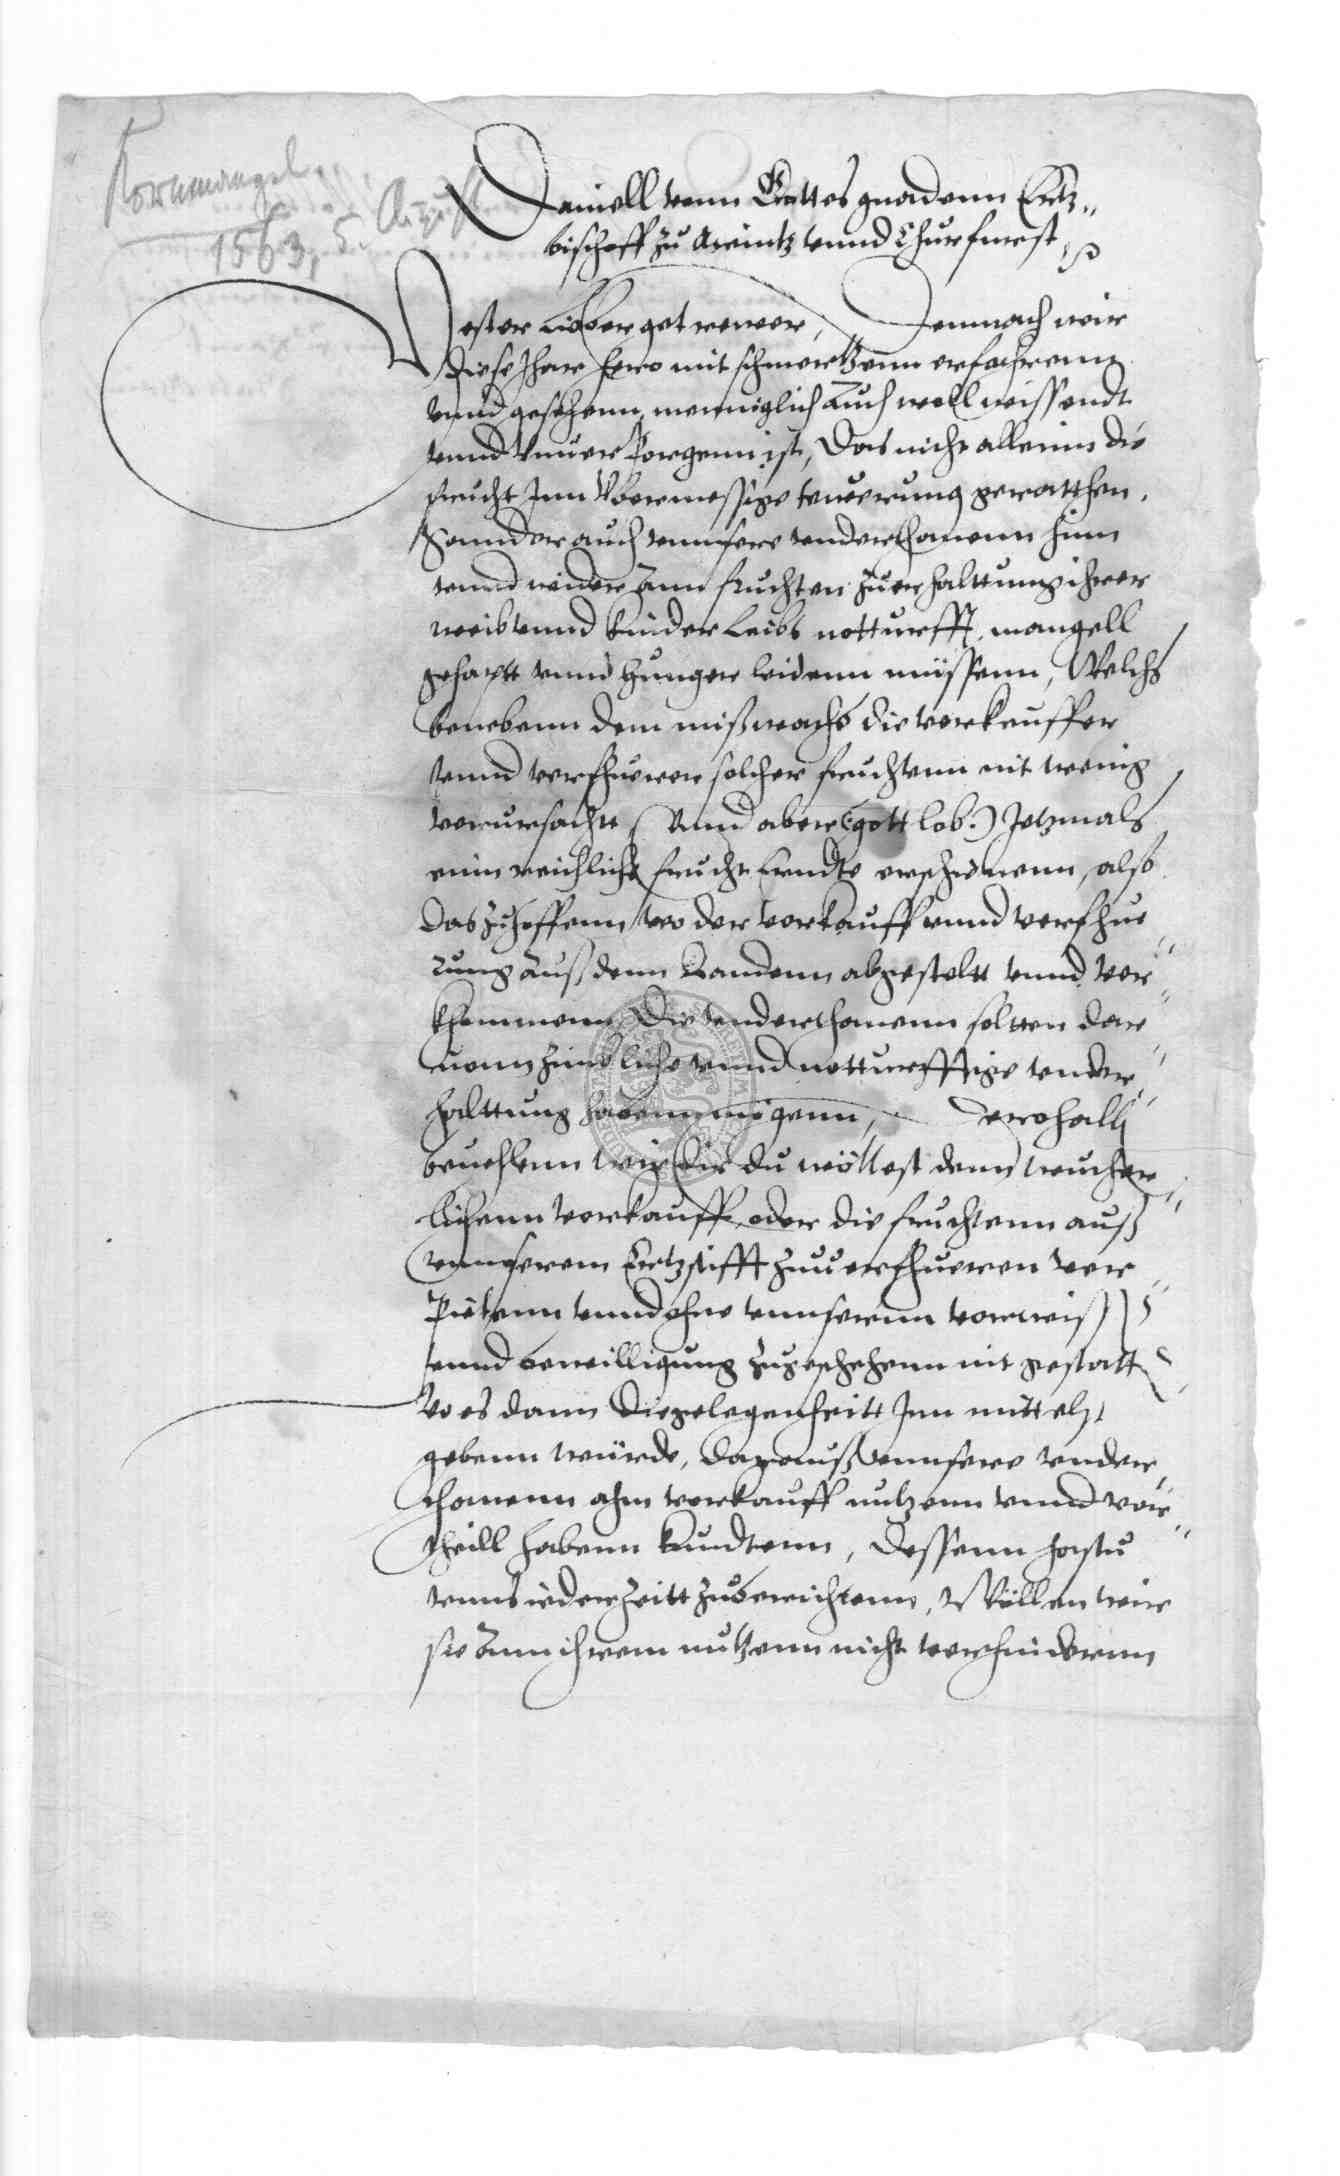 Kornmangel.
1563, 5. August
Daniell vonn Gottes gnadenn Ertz„
bischoff zu Meintz vnnd Churfurst
Vester Lieber getrewer, Demnach wir
diese Jhar hero mit schmertzenn erfahrenn
vnnd gesehenn, menniglich auch woll wissendt
vnnd vnuerporgenn ist, Das nicht alleinn die
frucht Jnn Vbermessige teuerung geratthen,
Sonnder auch vnnsere vnderthanenn hinn
vnnd wider ann fruchten zu erhalttung ihrer
weib vnnd kinder Leibs notturfft, mangell
gehaptt vnnd hunger leidenn müssenn, Welchs
benebenn dem mißwachs die verkeuffer
vnnd verfhuerer solcher fruchtenn nit wenig
verursachtt, Vnnd aber (gott lob.) Jetzmals
ein reichliche frucht Erndte erschienenn, also
das zu hoffenn, wo der verkauff vnnd verfhue
rung auß denn Landenn abgestelt vnnd ver„
khommenn, Die vnderthanenn soltten dar„
uonn zimbliche vnnd notturfftige vnder„
halttung habenn mögenn, derohalb
beuehlenn wir dir du wöllest denn wucher„
lichenn verkauff, oder die fruchtenn auß
vnnserem Ertzstifft zuuerfhueren ver„
pietenn vnnd ohne vnnserenn vorwiß
vnnd bewilligung zugeschehenn nit gestatt
Wo es dann die gelegenheitt Jnn mittelst
gebenn würde, darauß vnnsere vnder„
thanenn ahm verkauff nutzenn vnnd vor„
theill habenn kundtenn, Dessenn hastu
vnns ider Zeitt zuberichtenn, Wöllen wir
sie ann ihrem nutzenn nicht verhindernn